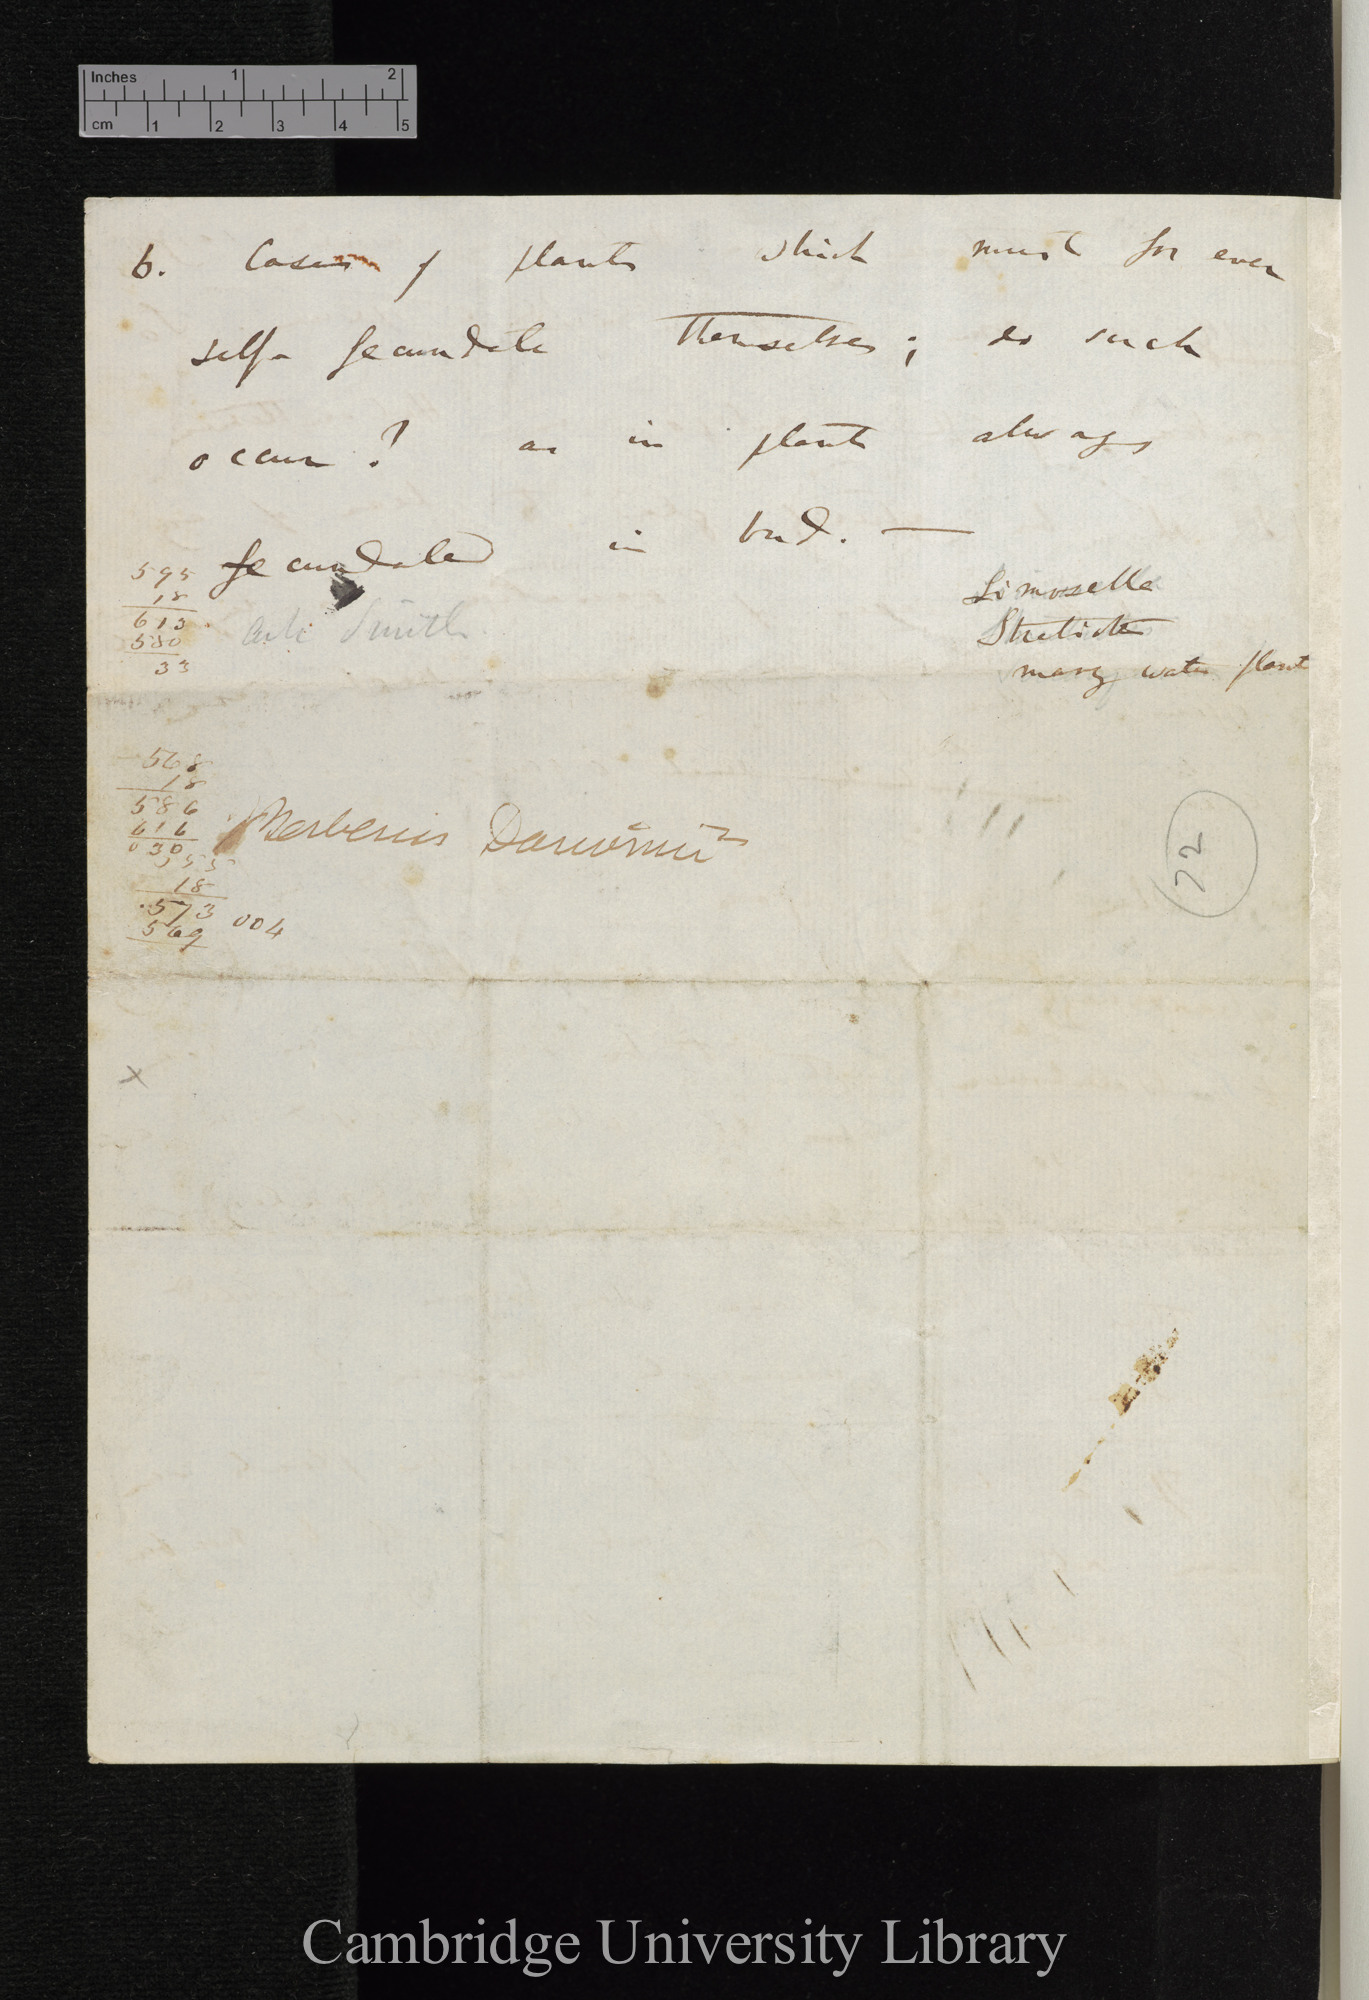 Inches 1 2
cm 1 2 3 4 5
6. Cases of plants which must for ever
self-fecundate themselves; do such
occur? as in plants always
fecundated in bud. —
Limosella
many water plants
595
18
613
580
33
Smith
568
18
586
616
030
Berberis Darwinii
555
18
573
569 004
72
x
Cambridge University Library